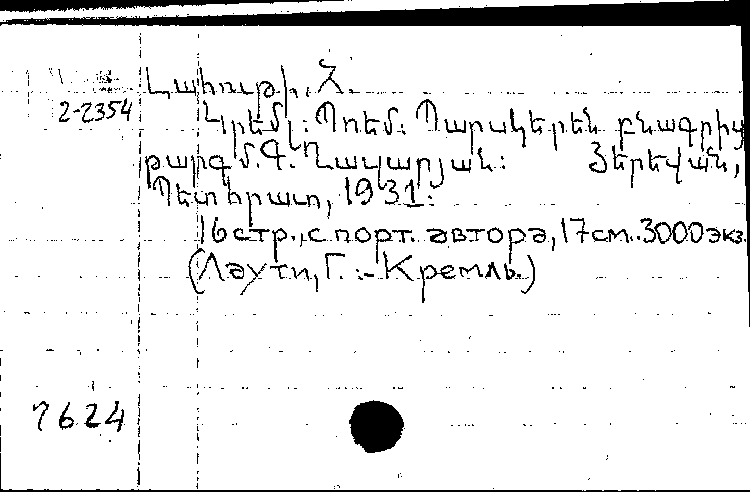 Լահութի, Հ.
2-2354
Կրեմլ: Պոեմ: Պարսկերեն բնագրից
թարգմ. Գ. Ղազարյան: Յերեվան,
Պետհրատ, 1931:
16 стр., с порт. автора, 17 см. 3000 экз.
(Лаути, Г. - Кремль.)
7624